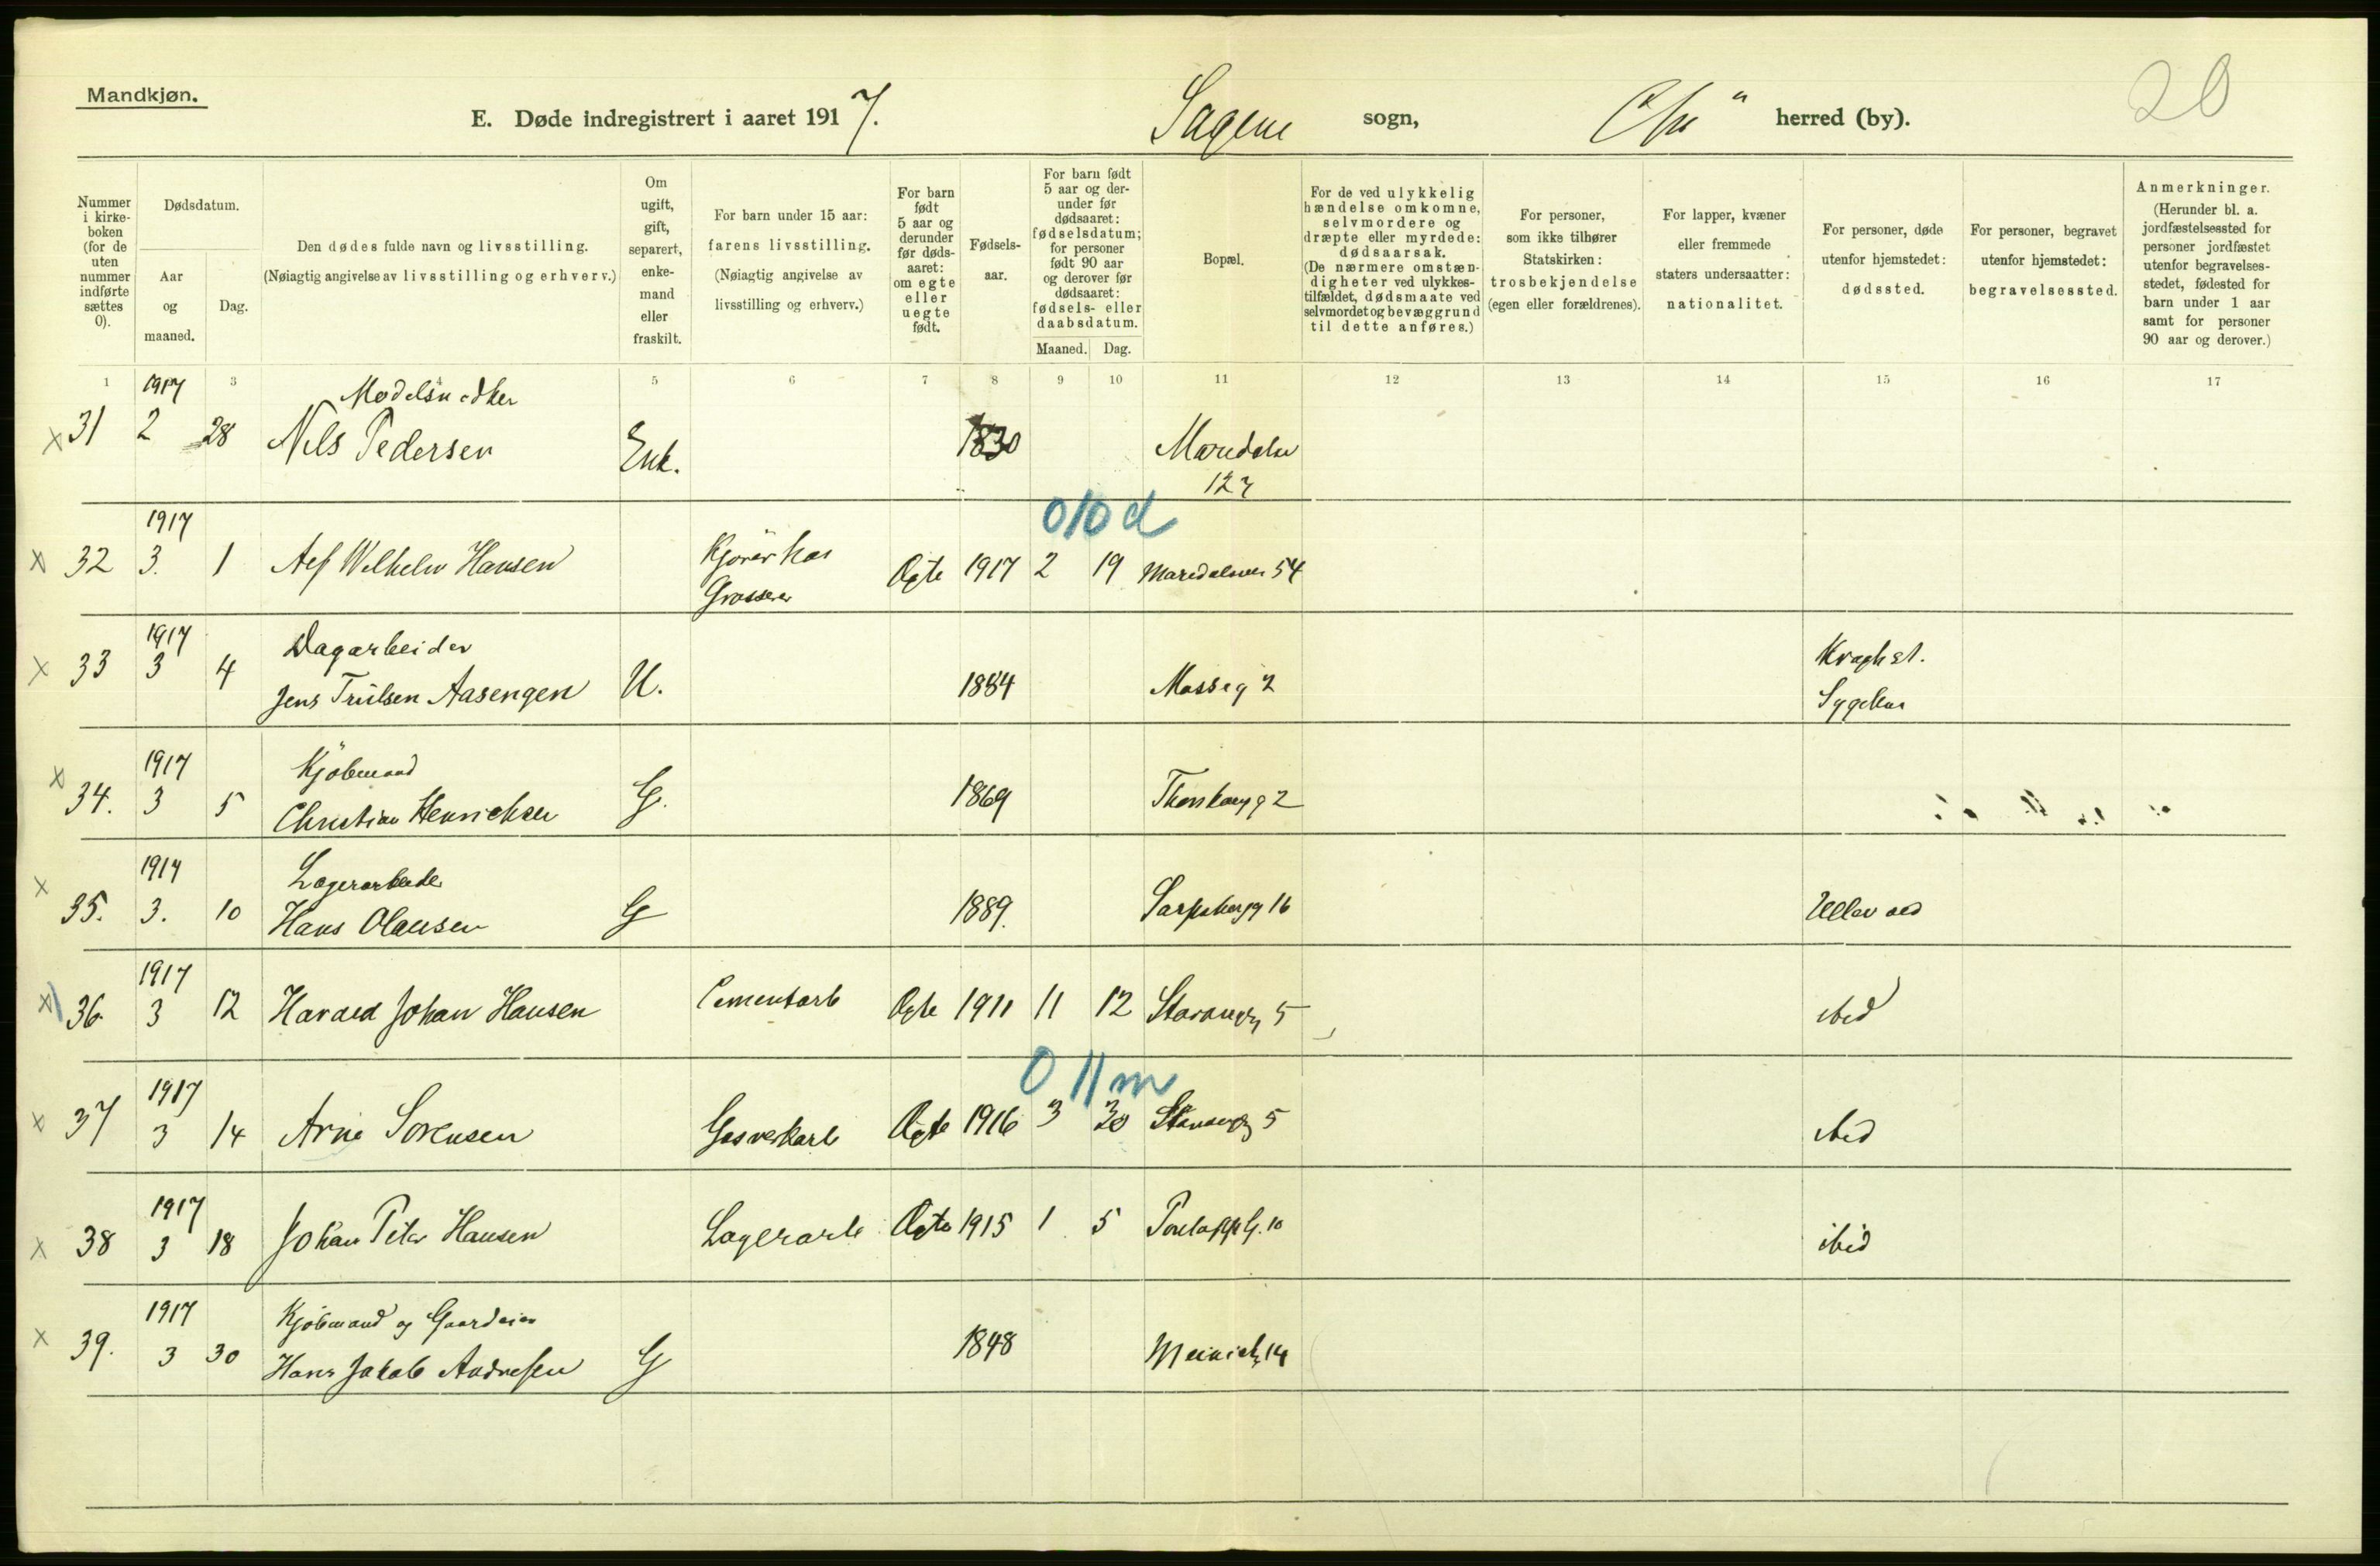 Mandkjøn.
E. Døde indregistrert i aaret 1917. Sagene sogn, Chr" herred (by). 20
Nummer i kirke-boken (for de uten nummer indførte sættes 0).
Dødsdatum.
Aar og maaned.
Dag.
Den dødes fulde navn og livsstilling.
(Nøiagtig angivelse av livsstilling og erhverv.)
Om ugift, gift, separert, enke-mand eller fraskilt.
For barn under 15 aar: farens livsstilling. (Nøiagtig angivelse av livsstilling og erhverv.)
For barn født 5 aar og derunder før døds-aaret: om egte eller uegte født.
Fødsels-aar.
For barn født 5 aar og der-under før dødsaaret: fødselsdatum; for personer født 90 aar og derover før dødsaaret: fødsels- eller daabsdatum.
Maaned. Dag.
Bopæl.
For de ved ulykkelig hændelse omkomne, selvmordere og dræpte eller myrdede: dødsaarsak. (De nærmere omstæn-digheter ved ulykkes-tilfældet, dødsmaate ved selvmordet og bevæggrund til dette anføres.)
For personer, som ikke tilhører Statskirken: trosbekjendelse (egen eller forældrenes).
For lapper, kvæner eller fremmede staters undersaatter: nationalitet.
For personer, døde utenfor hjemstedet: dødssted.
For personer, begravet utenfor hjemstedet: begravelsessted.
Anmerkninger. (Herunder bl. a. jordfæstelsessted for personer jordfæstet utenfor begravelses-stedet, fødested for barn under 1 aar samt for personer 90 aar og derover.)
1 3 5 6 7 8 9 10 11 12 13 14 15 16 17
1917 Modelsnedker
x 31 2 28 Nils Pedersen Enk. 1830 Maridalsv
127
010d
1917
x 32 3. 1 Alf Wilhelm Hansen Kjörer hos Grosserer Ogte 1917 2 19 Maridalsvei 54
1917 Dagarbeider Kragh st.
x 33 3 4 Jens Trulsen Aasengen U. 1884 Mosseg 2 Sygehus
1917 Kjöbmand
x 34. 3 5 Christian Henrichsen G. 1869 2
1917 Lagerarbeider
x 35. 3. 10 Hans Olausen G 1889. Sarpsborgg 16 Ullevaal
1917
x 36. 3 12 Harald Johan Hansen Cementarb Ogte 1911 11 12 Stavangg 5 ibid
0 11m
1917
x 37 3 14 Arne Sorensen Gasverkarb Ogte 1916 3 30 Stavangg 5 ibid
1917
x 38 3 18 Johan Peter Hansen Lagerarb Ogte 1915 1 5 10 ibid
1917 Kjöbmand og Gaardeier
x 39. 3 30 Hans Jakob Andresen G 1848 14